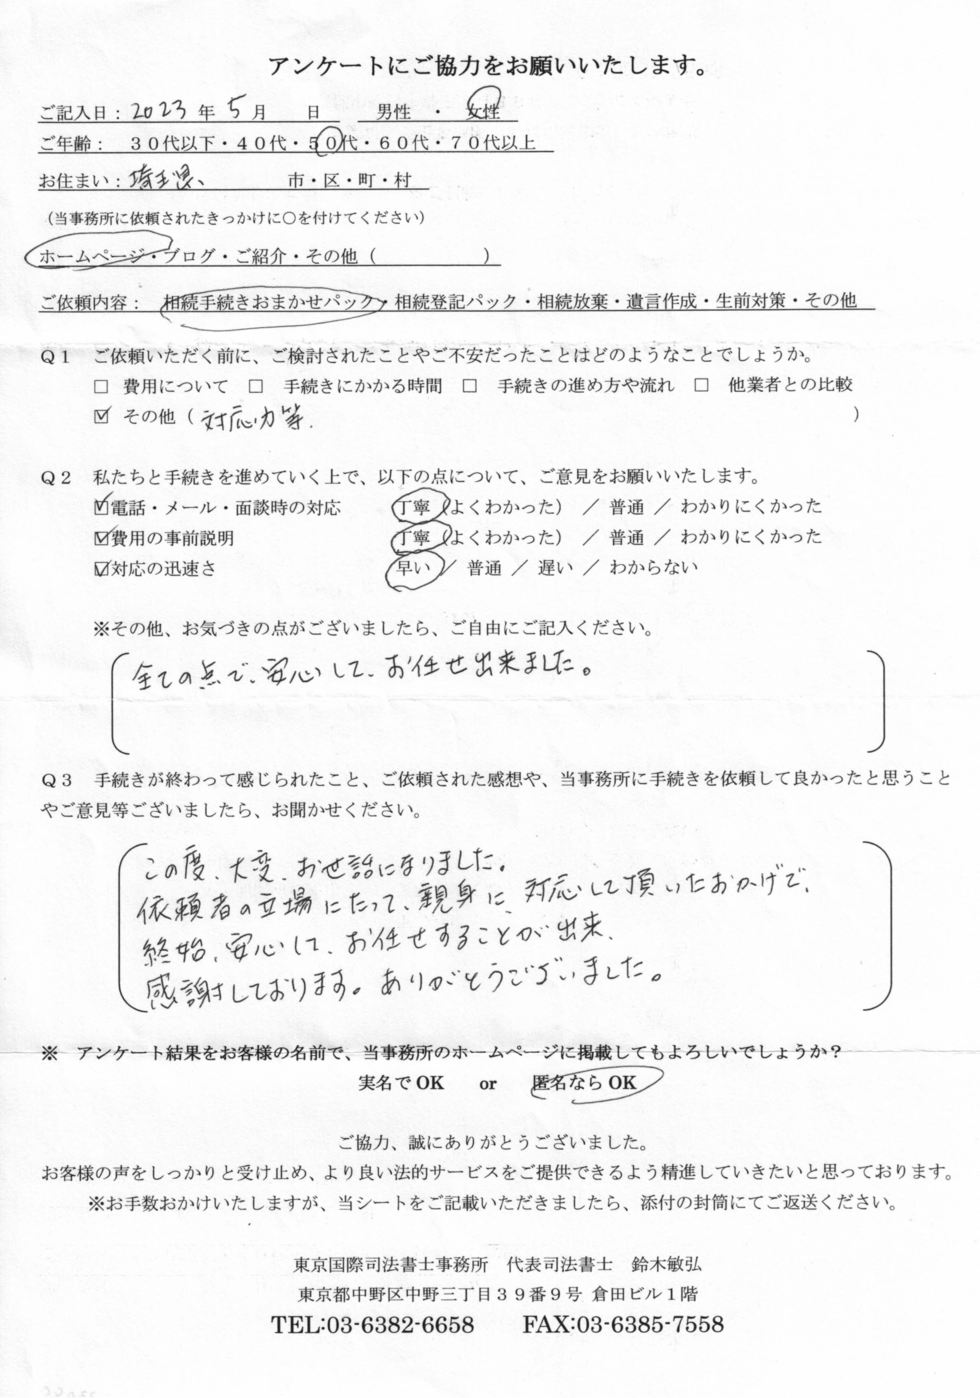 アンケートにご協力をお願いいたします。
ご記入日：2023 年 5 月　　日　　男性　・　女性
ご年齢：　３０代以下・４０代・５０代・６０代・７０代以上
お住まい：埼玉県、　　　　市・区・町・村
（当事務所に依頼されたきっかけに○を付けてください）
ホームページ・ブログ・ご紹介・その他（　　　　　　）
ご依頼内容：　相続手続きおまかせパック・相続登記パック・相続放棄・遺言作成・生前対策・その他
Ｑ１　ご依頼いただく前に、ご検討されたことやご不安だったことはどのようなことでしょうか。
□　費用について　□　手続きにかかる時間　□　手続きの進め方や流れ　□　他業者との比較
☑　その他（ 対応力等.　　　　　　）
Ｑ２　私たちと手続きを進めていく上で、以下の点について、ご意見をお願いいたします。
☑電話・メール・面談時の対応　　丁寧（よくわかった）　／　普通　／　わかりにくかった
☑費用の事前説明　　丁寧（よくわかった）　／　普通　／　わかりにくかった
☑対応の迅速さ　　早い　／　普通　／　遅い　／　わからない
※その他、お気づきの点がございましたら、ご自由にご記入ください。
全ての点で、安心して、お任せ出来ました。
Ｑ３　手続きが終わって感じられたこと、ご依頼された感想や、当事務所に手続きを依頼して良かったと思うこと
やご意見等ございましたら、お聞かせください。
この度、大変、お世話になりました。
依頼者の立場にたって、親身に、対応して頂いたおかげで、
終始、安心して、お任せすることが出来、
感謝しております。ありがとうございました。
※　アンケート結果をお客様の名前で、当事務所のホームページに掲載してもよろしいでしょうか？
実名でOK　　or　　匿名ならOK
ご協力、誠にありがとうございました。
お客様の声をしっかりと受け止め、より良い法的サービスをご提供できるよう精進していきたいと思っております。
※お手数おかけいたしますが、当シートをご記載いただきましたら、添付の封筒にてご返送ください。
東京国際司法書士事務所　代表司法書士　鈴木敏弘
東京都中野区中野三丁目３９番９号 倉田ビル１階
TEL:03-6382-6658　　FAX:03-6385-7558